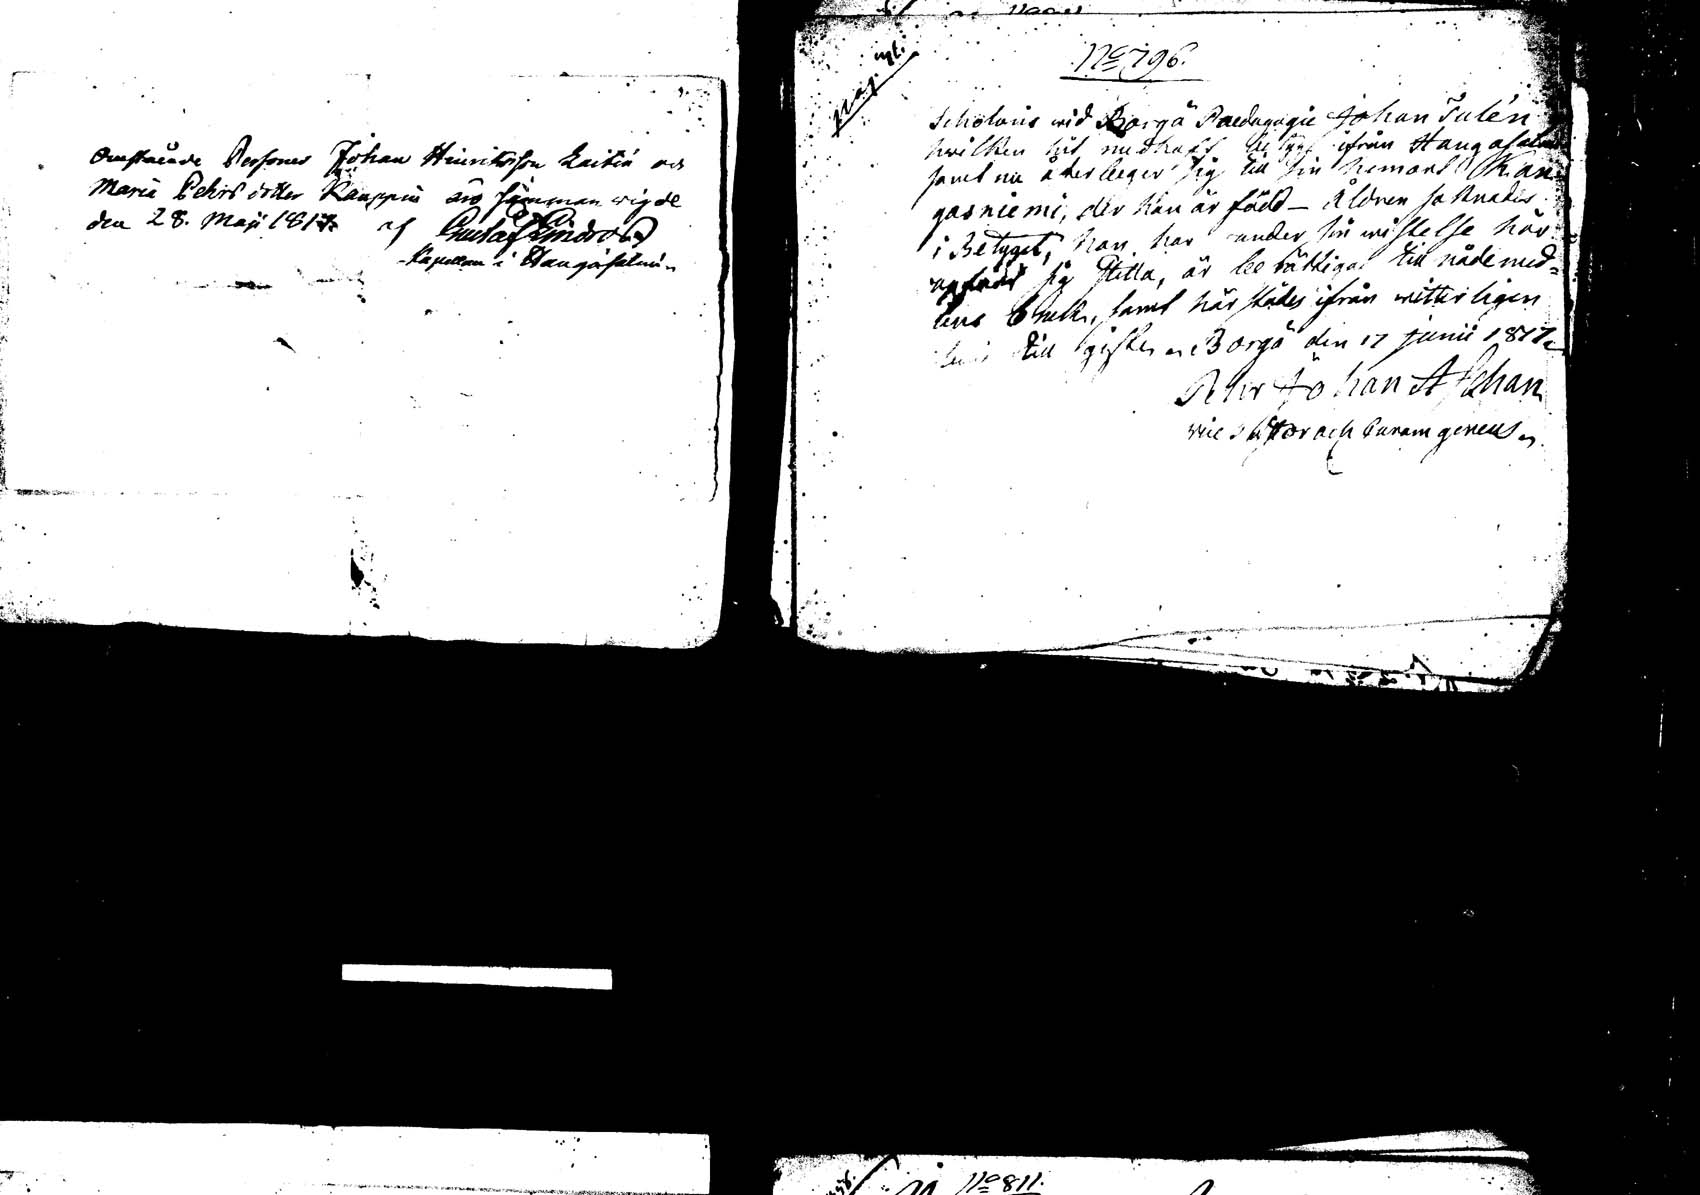 Omstående Personer Johan Hinriksson Laitin och
Maria Pehrsdotter Kauppin äro samman wigde
den 28. Maji 1817. af Gustaf Lindroos
Kapellan i Hangasalmi
No 796.
Scholaris wid Borgå Paedagogie Johan Tulén
hwilken hit medhaft betyg ifrån Hangasalmi
samt nu återbeger sig till sin hemort Kan-
gasniemi, der han är född – Åldren saknades
i Betyget, han har under sin wistelse här
uppfört sig stilla, är berättigad till nådemed-
lens bruk, samt härstädes ifrån witterligen
till gifte. Borgå den 17 Junii 1817.
Pehr Johan Alfthan
No 811.